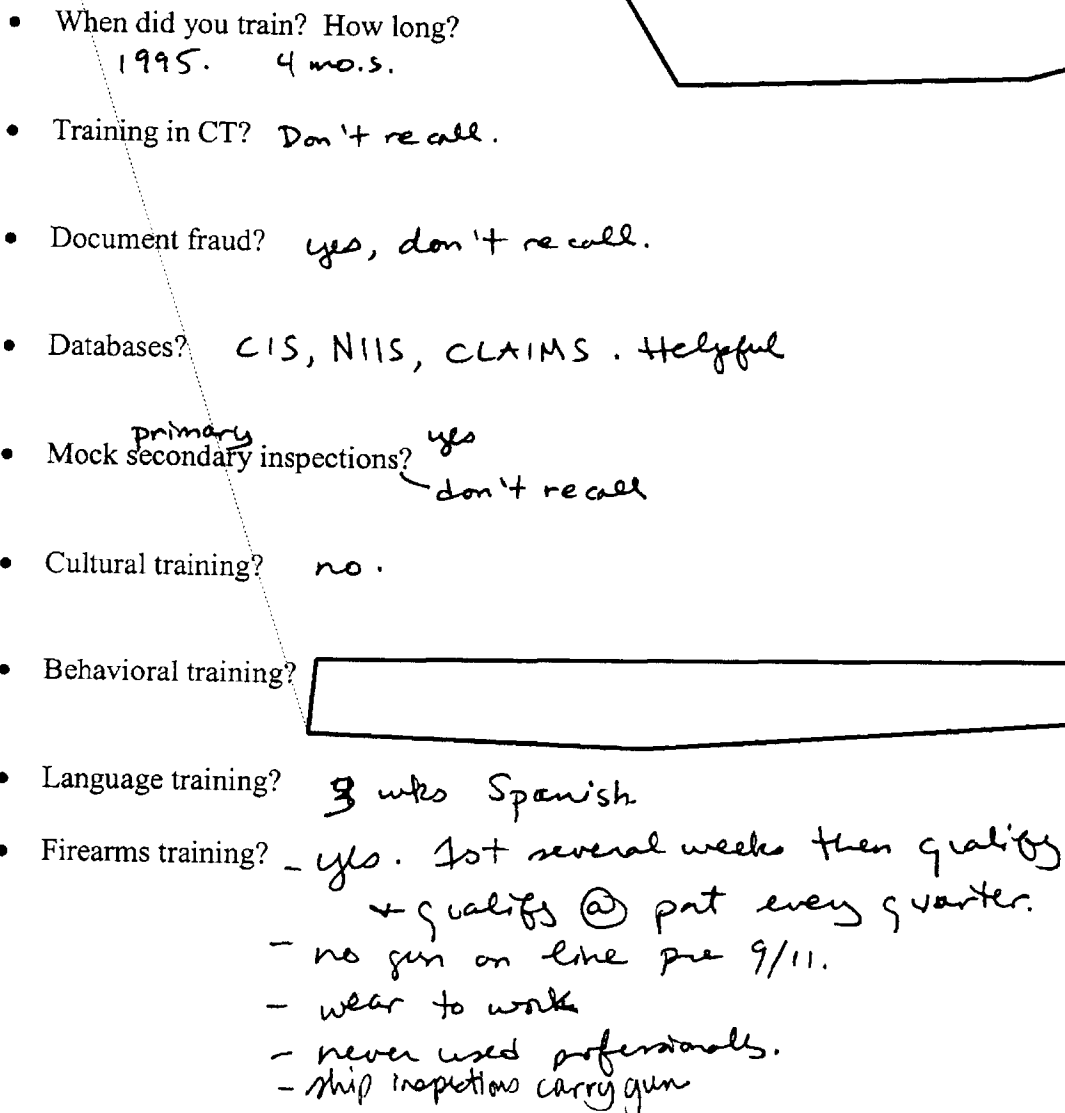 • When did you train? How long?
1995. 4 mo.s.
• Training in CT? Don't recall.
• Document fraud? yes, don't recall.
• Databases? CIS, NIIS, CLAIMS. Helpful
primary yes
• Mock secondary inspections?
don't recall
• Cultural training? no.
• Behavioral training?
• Language training? 3 wks Spanish
• Firearms training? - yes. 1st several weeks then qualify
+ qualify @ port every quarter.
- no gun on line pre 9/11.
- wear to work
- never used professionally.
- ship inspections carry gun